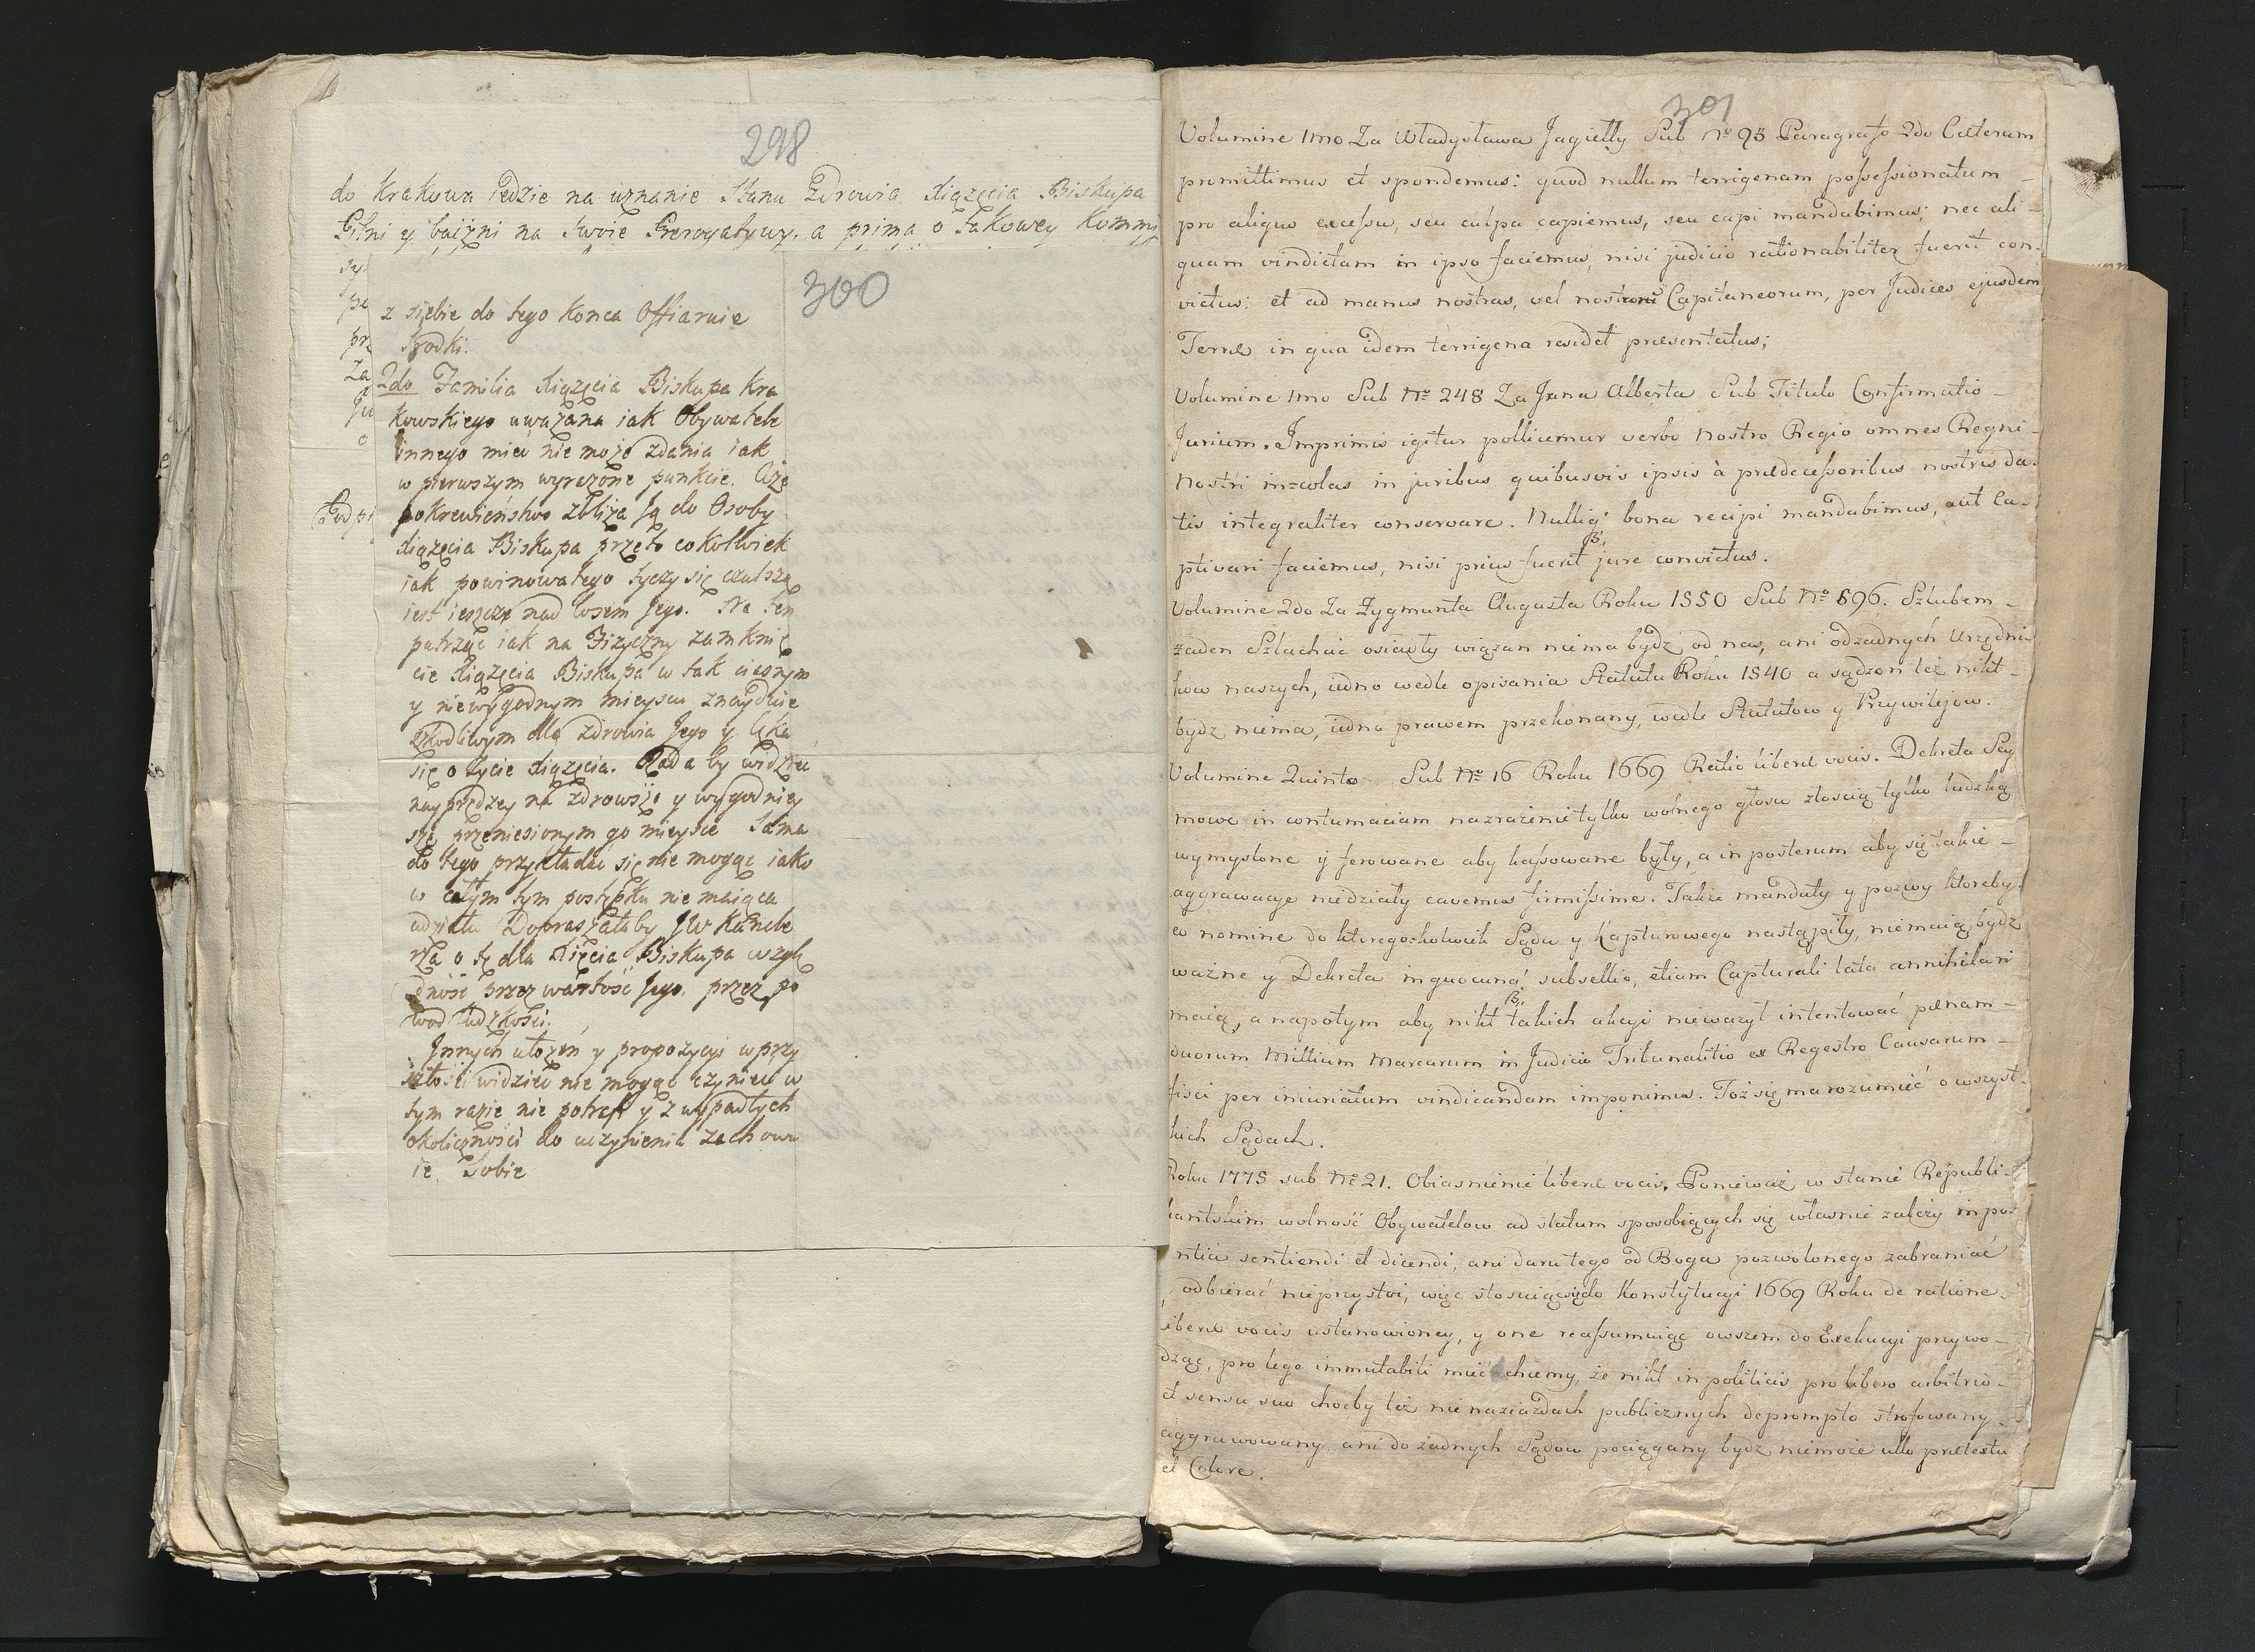 298
do Krakowa iedzie na uznanie Stanu Zdrowia Xiążęcia Biskupa
Pilni y baiżni na swoie Prerogatywy, a prima o takowey Kommi
sy
po
prz
za
Ju
o
Podpi
300
z siebie do tego Konca Offiaruie
Srodki.
2do Familia Xiążęcia Biskupa Kra
kowskiego uważana iak Obywatele
innego mieć nie może zdania iak
w pierwszym wyrażone punkcie. Aże
pokrewieństwo zbliża Ją do Osoby
Xiążęcia Biskupa przeto cokolwiek
iak powinowatego tyczy się czulszą
iest ieszcze nad losem Jego. Na ten
patrząc iak na Fizyczny zamknię
cie Xiążęcia Biskupa w tak ciasnym
y niewygodnym mieyscu znayduie
szkodliwym dla zdrowia Jego y lęka
się o życie Xiążęcia. Rada by widzieć
nayprędzey na zdrowsze y wygodniey
sze przeniesionym go mieysce Sama
do tego przykładać się nie mogąc iako
w całym tym postępku nie maiąca
udziału Dopraszałaby JW Kancle
rza o tę dla Xcięcia Biskupa wzglę
dność przez wartość Jego, przez po
wod ludzkości.
Innych ułożeń y propozycyi w przy
szłości widzieć nie mogąc czynieu w
tym razie nie potrafi y z wypadłych
okoliczności do uczynienia zachowu
ie Sobie
301
Volumine 1mo Za Władysława Jagiełły Sub No 93 Paragrafo 2do Cæterum
promittimus et spondemus: quod nullum terrigenam possessionatum
pro aliquo excessu, seu culpa capiemus, seu capi mandabimus; nec ali-
quam vindictam in ipso faciemus, nisi judicio rationabiliter fuerit con-
victus: et ad manus nostras, vel nostrorū Capitaneorum, per Judices ejusdem
Terræ in qua idem terrigena residet præsentatus;
Volumine 1mo Sub No 248 Za Jana Alberta Sub Titulo Confirmatio
Jurium. Imprimis igitur pollicemur verbo nostro Regio omnes Regni
Nostri in=colas in juribus quibusvis ipsis à prædecessoribus nostris da-
tis integraliter conservare. Nulliq' bona recipi mandabimus, aut Ca-
ptivari faciemus, nisi prius fuerit jure convictus.
Volumine 2do Za Zygmunta Augusta Roku 1550 Sub No 596. Szlubem
żaden Szlachcic osiadły wiązan niema bydź od nas, ani odżadnych Urzędni
kow naszych, iedno wedle opisania Statutu Roku 1540 a sądzon też nikt
bydź niema, iedno prawem przekonany, wedle Statutow y Przywilejow.
Volumine Quinto Sub No 16 Roku 1669 Ratio liberæ vocis. Dekreta Sey
mowe in contumaciam na zrażenie tylko wolnego głosu złością tylko ludzką
wymyslone ÿ ferowane aby kassowane były, a in posterum aby się takie
aggrawacye niedziały cavemus firmissime. Takie mandaty y pozwy ktoreby
eo nomine do ktoregoż-kolwiek Sądu y Kapturowego nastąpiły, niemaią bydź
ważne y Dekreta inquocunq' subsellio, etiam Capturali lata annihilari
maią, a napotym aby nikt takich akcyi nieważył intentować pænam
duorum Millium Marcarum in Judicio Tribunalitio ex Regestro Causarum
fisci per iniuriatum vindicandam imponimus. Toż się ma rozumieć o wszyst-
kich Sądach.
Roku 1775 sub No 21. Obiasnienie liberæ vocis. Ponieważ w stanie Republi-
kantskim wolność Obywatelow ad statum sposobiących się własnie zależy in po-
ntia sentiendi et dicendi, ani daru tego od Boga pozwolonego zabraniać
odbierać nieprzystoi, więc stosuiąc się do Konstytucyi 1669 Roku de ratione
liberæ vocis ustanowioney, y one reassumuiąc owszem do Exekucyi przywo-
dząc, pro lege immutabili mieć chcemy, że nikt in politicis pro libero arbitrio
et sensu suo choćby też nie na ziazdach publicznych deprompto strofowany
aggrawowany ani do żadnych Sądow pociągany bydź niemoże ullo prætextu
et Colore.